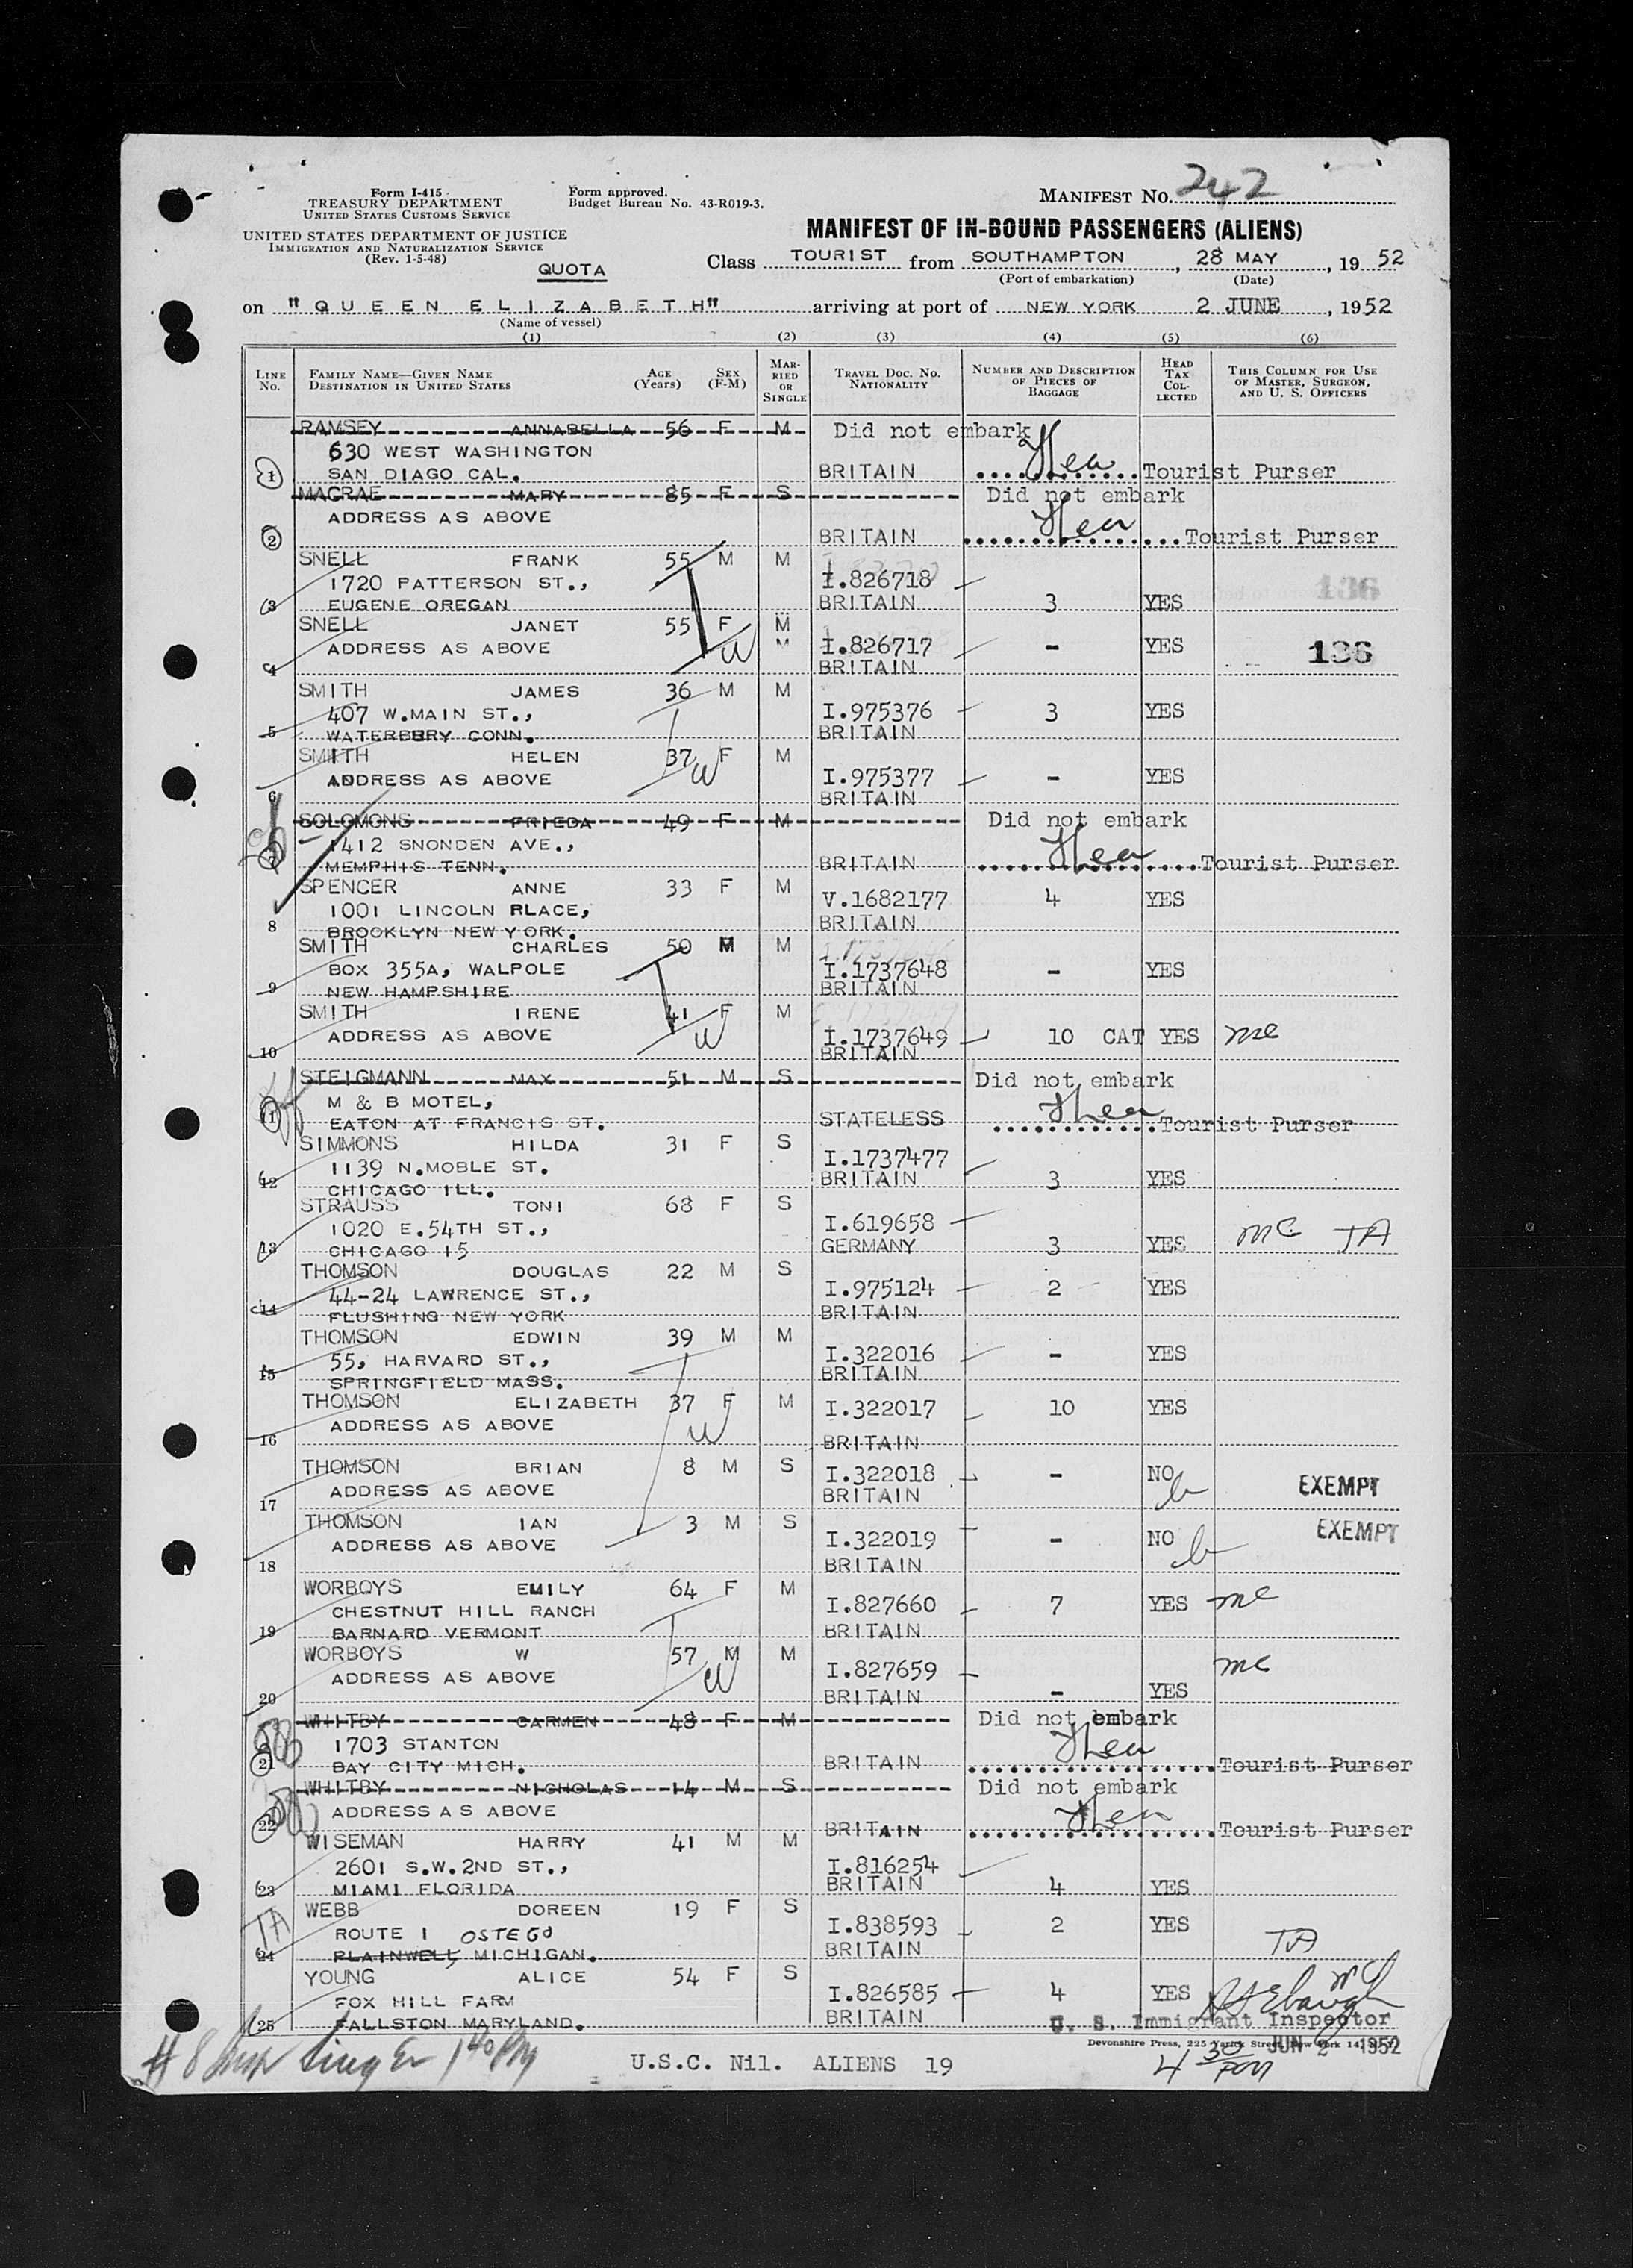 Form I-415
TREASURY DEPARTMENT
UNITED STATES CUSTOMS SERVICE
UNITED STATES DEPARTMENT OF JUSTICE
IMMIGRATION AND NATURALIZATION SERVICE
(Rev. 1-5-48)
Form approved.
Budget Bureau No. 43-R019-3.
MANIFEST No. 242
MANIFEST OF IN-BOUND PASSENGERS (ALIENS)
QUOTA
Class TOURIST from SOUTHAMPTON, 28 MAY, 1952
(Port of embarkation) (Date)
on "QUEEN ELIZABETH" arriving at port of NEW YORK 2 JUNE, 1952
(Name of vessel)
(1) (2) (3) (4) (5) (6)
LINE No. FAMILY NAME—GIVEN NAME DESTINATION IN UNITED STATES AGE (Years) SEX (F-M) MARRIED OR SINGLE TRAVEL DOC. NO. NATIONALITY NUMBER AND DESCRIPTION OF PIECES OF BAGGAGE HEAD TAX COLLECTED THIS COLUMN FOR USE OF MASTER, SURGEON, AND U. S. OFFICERS
RAMSEY ANNABELLA 56 F M Did not embark
630 WEST WASHINGTON
1 SAN DIAGO CAL. BRITAIN Tourist Purser
MACRAE MARY 85 F S Did not embark
ADDRESS AS ABOVE
2 BRITAIN Tourist Purser
SNELL FRANK 55 M M
1720 PATTERSON ST., I.826718
3 EUGENE OREGAN BRITAIN 3 YES 136
SNELL JANET 55 F M
ADDRESS AS ABOVE W M I.826717 - YES 136
4 BRITAIN
SMITH JAMES 36 M M
407 W.MAIN ST., I.975376 3 YES
5 WATERBBRY CONN. BRITAIN
SMITH HELEN 37 F M
ADDRESS AS ABOVE W I.975377 - YES
6 BRITAIN
SOLOMONS FRIEDA 49 F M Did not embark
1412 SNONDEN AVE.,
7 MEMPHIS TENN. BRITAIN Tourist Purser
SPENCER ANNE 33 F M
1001 LINCOLN RLACE, V.1682177 4 YES
8 BROOKLYN NEW YORK. BRITAIN
SMITH CHARLES 50 M M
BOX 355A, WALPOLE I.1737648 - YES
9 NEW HAMPSHIRE BRITAIN
SMITH IRENE 41 F M
ADDRESS AS ABOVE W I.1737649 10 CAT YES mc
10 BRITAIN
STEIGMANN MAX 51 M S Did not embark
M & B MOTEL,
11 EATON AT FRANCIS ST. STATELESS Tourist Purser
SIMMONS HILDA 31 F S
1139 N.MOBLE ST. I.1737477
12 CHICAGO ILL. BRITAIN 3 YES
STRAUSS TONI 68 F S
1020 E.54TH ST., I.619658
13 CHICAGO 15 GERMANY 3 YES mc TA
THOMSON DOUGLAS 22 M S
44-24 LAWRENCE ST., I.975124 2 YES
14 FLUSHING NEW YORK BRITAIN
THOMSON EDWIN 39 M M
55, HARVARD ST., I.322016 - YES
15 SPRINGFIELD MASS. BRITAIN
THOMSON ELIZABETH 37 F M I.322017 10 YES
ADDRESS AS ABOVE W
16 BRITAIN
THOMSON BRIAN 8 M S I.322018 - NO EXEMPT
ADDRESS AS ABOVE BRITAIN
17
THOMSON IAN 3 M S I.322019 - NO EXEMPT
ADDRESS AS ABOVE
18 BRITAIN
WORBOYS EMILY 64 F M
CHESTNUT HILL RANCH I.827660 7 YES mc
19 BARNARD VERMONT BRITAIN
WORBOYS W 57 M M mc
ADDRESS AS ABOVE W I.827659
20 BRITAIN - YES
WHITBY CARMEN 48 F M Did not embark
1703 STANTON
21 BAY CITY MICH. BRITAIN Tourist Purser
WHITBY NICHOLAS 14 M S Did not embark
ADDRESS AS ABOVE
22 BRITAIN Tourist Purser
WISEMAN HARRY 41 M M
2601 S.W.2ND ST., I.816254
23 MIAMI FLORIDA BRITAIN 4 YES
WEBB DOREEN 19 F S
TA ROUTE 1 OSTEGO I.838593 2 YES
24 PLAINWELL, MICHIGAN. BRITAIN TA
YOUNG ALICE 54 F S
FOX HILL FARM I.826585 4 YES
25 FALLSTON MARYLAND. BRITAIN U. S. Immigrant Inspector
Devonshire Press, 225 Varick Street, New York 14
JUN 2 1952
U.S.C. Nil. ALIENS 19
4 30 PM